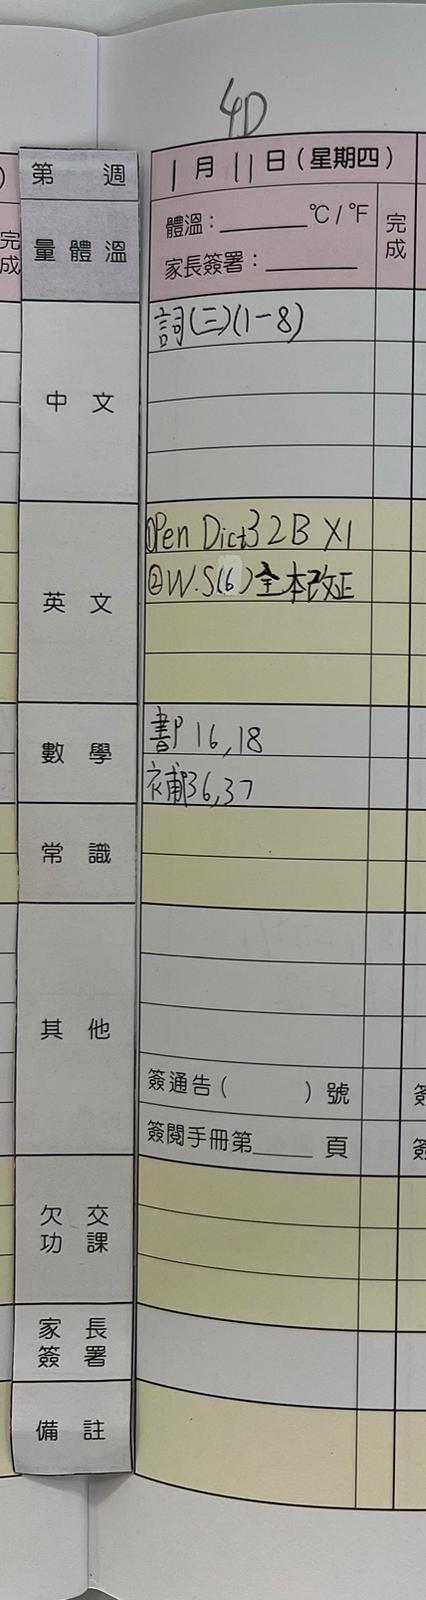 4D
第 週
1月11日(星期四)
量體溫
體溫：______°C/°F
家長簽署：______
完成
完成
中文
詞(三)(1-8)
英文
①Pen Dict32B X1
②W.S(6)全本改正
數學
書P16,18
補P36,37
常識
其他
簽通告( )號
簽閱手冊第____頁
欠交功課
家長簽署
備註